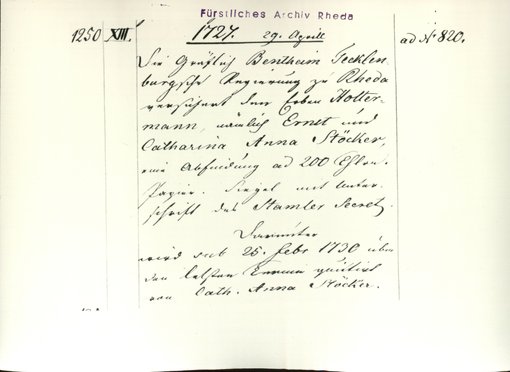 Fürstliches Archiv Rheda
1250 XIII. 1727. 29. Aprill ad N. 820.
Die Gräflich Bentheim Tecklen
burgsche Regierung zu Rheda
versichert den Erben Hotter-
mann, nämlich Ernst und
Catharina Anna Stöcker,
eine Abfindung ad 200 Thlr.
Papier. Siegel mit Unter-
schrift des Stamler Secret.
Darunter
wird sub 26. Febr 1730 über
den letzten quitirt
von Cath. Anna Stöcker.